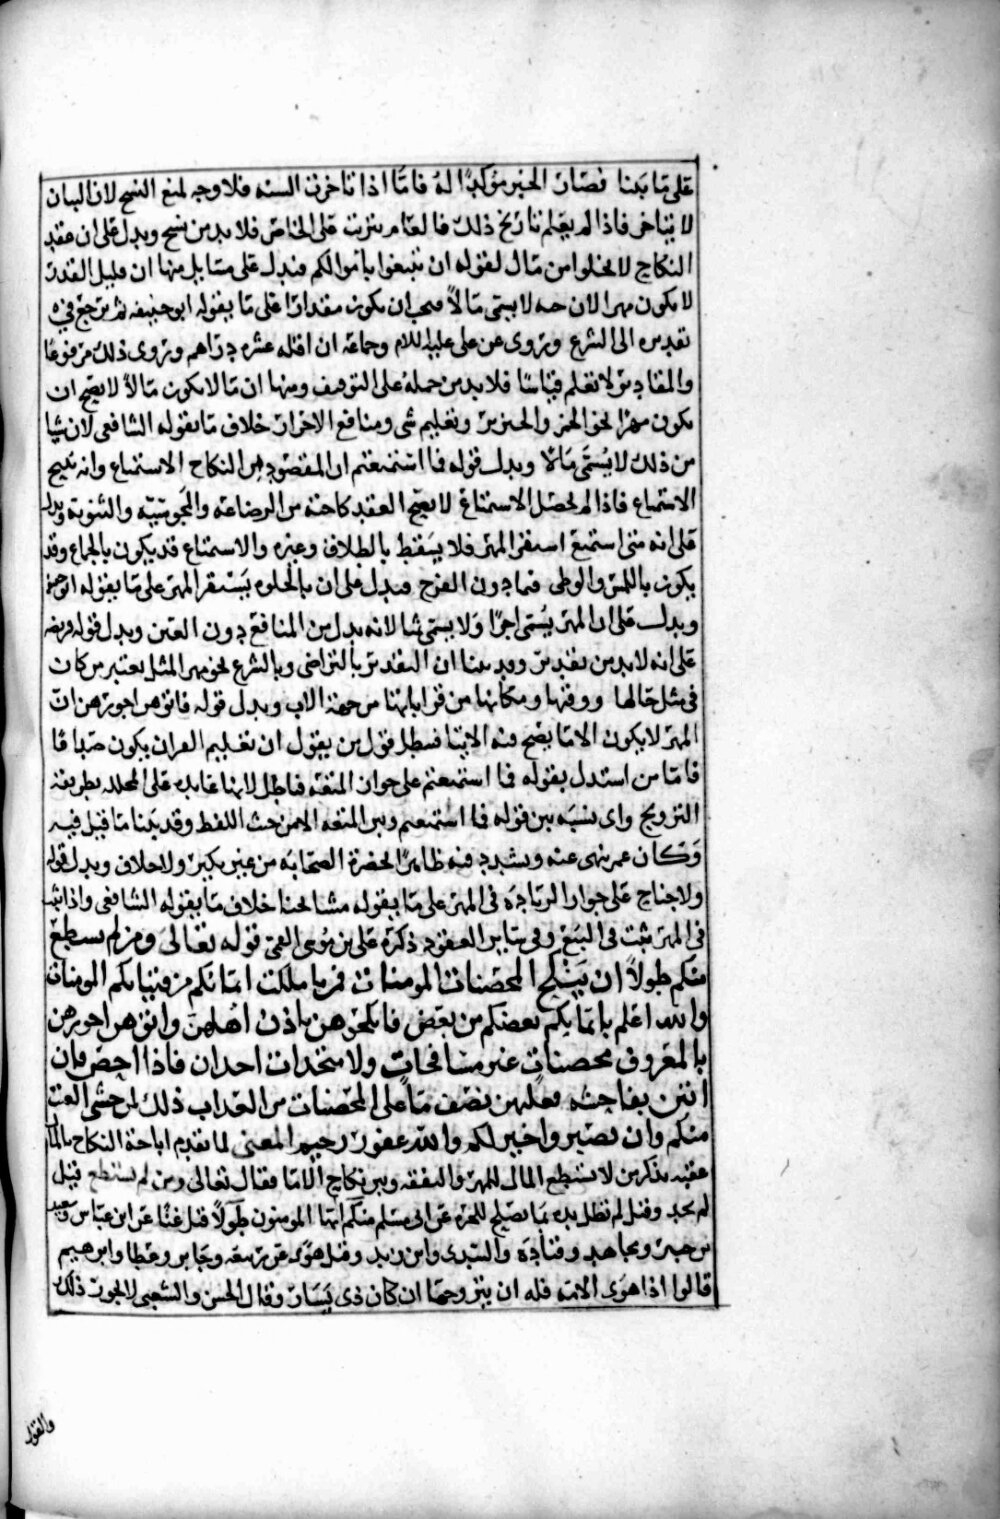 على ما بينا فصار الخبر مؤكدا له فاما اذا تاخرت السنه فلا وجه لمنع النسخ لان البيان
لا يتاخر فاذا لم يعلم تاريخ ذلك فالعام يترتب على الخاص فلا بد من نسخ ويدل على ان عقد
النكاح لا يخلوا من مال لقوله ان تبتغوا باموالكم فيدل على مسايل منها ان قليل القدر
لا يكون مهرا لان حبه لا يسمى مالا فيجب ان يكون مقدارا على ما يقوله ابو حنيفه ثم نرجع في
تقديره الى الشرع وتروى عن على عليه السلام وجماعة ان اقله عشره دراهم وتروى ذلك مرفوعا
والمقادير لا تعلم قياسا فلا بد من حمله على التوقيف ومنها ان ما لا يكون مالا لا يصح ان
يكون مهرا نحو الخمر والخنزير وتعليم شى ومنافع الاحرار خلاف ما يقوله الشافعى لان شيا
من ذلك لا يسمى مالا ويدل قوله فما استمتعتم ان المقصود من النكاح الاستمتاع وانه يبيح
الاستمتاع فاذا لم يحصل الاستمتاع لا يصح العقد كاخته من الرضاعة والمجوسية والثنوية ويدل
على انه متى استمتع استقر المهر فلا يسقط بالطلاق وغيره والاستمتاع قد يكون بالجماع وقد
يكون باللمس والوطى فيما دون الفرج فيدل على ان بالخلوه يستقر المهر على ما يقوله ابو حنيفه
ويدل على ان المهر يسمى اجرا ولا يسمى ثمنا لانه بدل من المنافع دون العين ويدل قوله فريضه
على انه لا بد من تقدير وقد بينا ان التقدير بالتراضى وبالشرع نحو مهر المثل يعتبر من كان
فى مثل حالها ووقتها ومكانها من قراباتها من جهة الاب ويدل قوله فاتوهن اجورهن ان
المهر لا يكون الا ما يصح فيه الايتا فبطل قول من يقول ان تعليم القران يكون صداقا
فاما من استدل بقوله فما استمتعتم على جواز المتعه فباطل لانها عايده على المحلله بطريقه
التزويج واى نسبه بين قوله فما استمتعتم وبين المتعه الا من حيث اللفظ وقد بينا ما قيل فيه
وكان عمر نهى عنه ويشدد فيه ظاهرا لحضرة الصحابه من غير نكير ولا خلاف ويدل قوله
ولا جناح على جواز الزيادة فى المهر على ما يقوله مشايخنا خلاف ما يقوله الشافعى واذا ثبت
فى المهر ثبت فى البيع وفى ساير العقود ذكره على بن موسى القمى قوله تعالى ومن لم يستطع
منكم طولا ان ينكح المحصنات المومنات فمن ما ملكت ايمانكم من فتياتكم المومنات
والله اعلم بايمانكم بعضكم من بعض فانكحوهن باذن اهلهن واتوهن اجورهن
بالمعروف محصنات غير مسافحات ولا متخذات اخدان فاذا احصن فان
اتين بفاحشه فعليهن نصف ما على المحصنات من العذاب ذلك لمن خشى العنت
منكم وان تصبروا خير لكم والله غفور رحيم المعنى لما تقدم اباحة النكاح بالمال
عقبه بذكر من لا يستطيع المال للمهر والنفقه وبين نكاح الاما فقال تعالى ومن لم يستطع قيل
لم يجد وقيل لم تطل يده بما يصلح للحرة عن ابى مسلم منكم ايها المومنون طولا قيل غنا عن ابن عباس وسعيد
بن جبير ومجاهد وقتادة والسدى وابن زيد وقيل هوى عن ربيعه وجابر وعطا وابرهيم
قالوا اذا هوى الامه فله ان يتزوجها ان كان ذى يسار وقال الحسن والشعبى لا يجوز ذلك
والقول